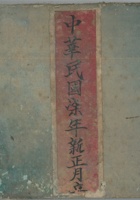 中華民國柒年新正月立